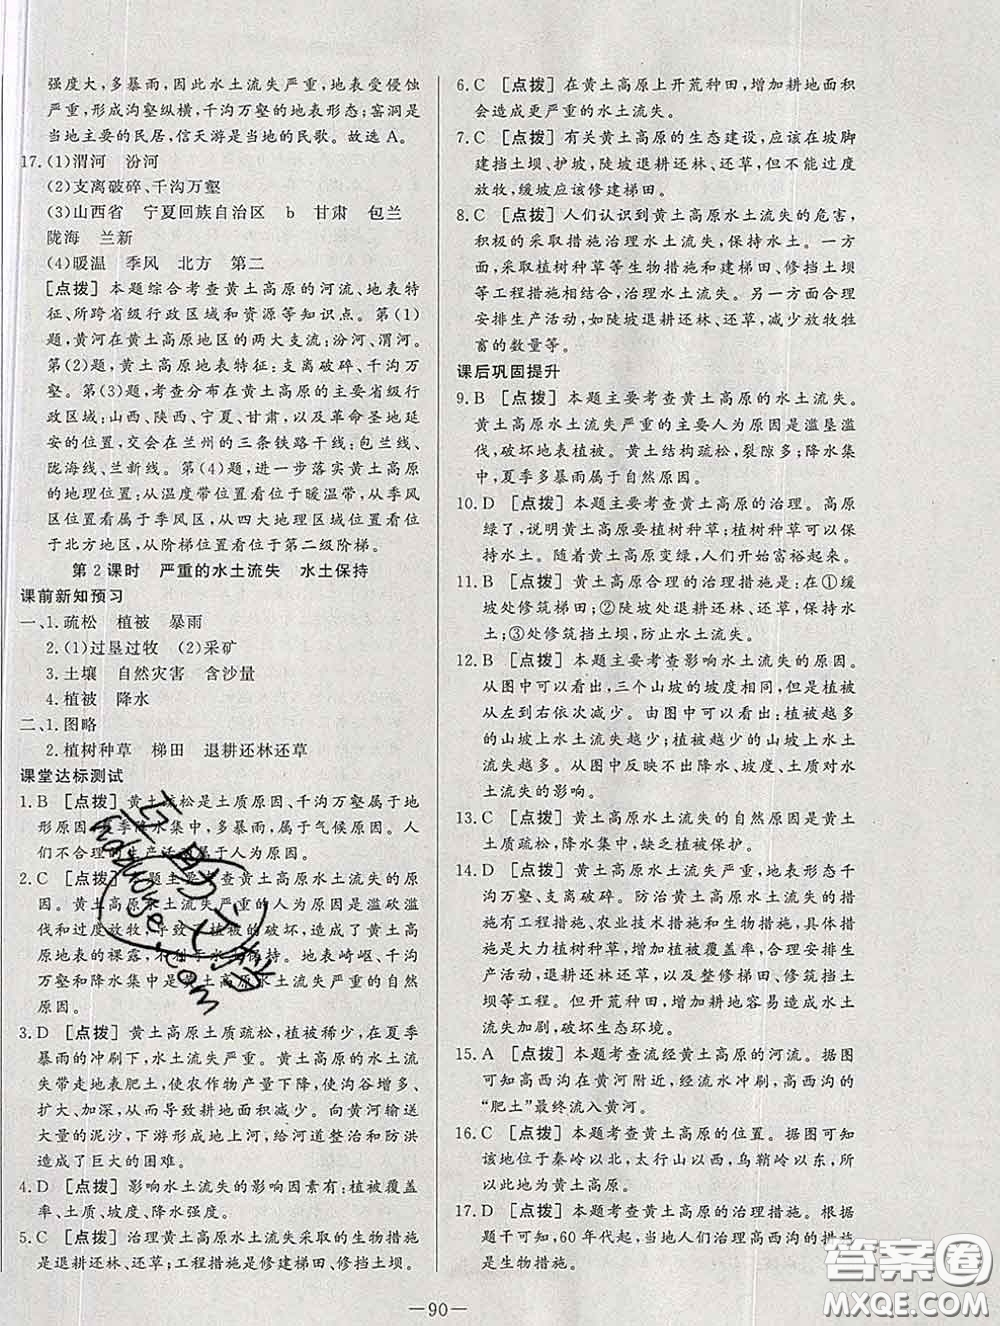 强度大,多暴雨,因此水土流失严重,地表受侵蚀
严重,形成沟壑纵横,千沟万壑的地表形态;窑洞是
当地主要的民居,信天游是当地的民歌。故选A。
17.(1)渭河 汾河
(2)支离破碎、千沟万壑
(3)山西省 宁夏回族自治区 b 甘肃 包兰
陇海 兰新
(4)暖温 季风 北方 第二
[点拨] 本题综合考查黄土高原的河流、地表特
征、所跨省级行政区域和资源等知识点。第(1)
题,黄河在黄土高原地区的两大支流:汾河、渭河。
第(2)题,黄土高原地表特征:支离破碎、千沟万
壑。第(3)题,考查分布在黄土高原的主要省级行
政区域:山西、陕西、宁夏、甘肃,以及革命圣地延
安的位置,交会在兰州的三条铁路干线:包兰线、
陇海线、兰新线。第(4)题,进一步落实黄土高原
的地理位置:从温度带位置看位于暖温带,从季风
区位置看属于季风区,从四大地理区域位置看位
于北方地区,从阶梯位置看位于第二级阶梯。
第2课时 严重的水土流失 水土保持
课前新知预习
一、1.疏松 植被 暴雨
2.(1)过垦过牧 (2)采矿
3.土壤 自然灾害 含沙量
4.植被 降水
二、1.图略
2.植树种草 梯田 退耕还林还草
课堂达标测试
1.B [点拨] 黄土疏松是土质原因、千沟万壑属于地
形原因、夏季降水集中,多暴雨,属于气候原因。人
们不合理的生产活动属于人为原因。
2.C [点拨] 本题主要考查黄土高原水土流失的原
因。黄土高原水土流失严重的人为原因是滥砍滥
伐和过度放牧,导致了植被的破坏,造成了黄土高
原地表的裸露,不利于水土保持。地表崎岖、千沟
万壑和降水集中是黄土高原水土流失严重的自然
原因。
3.D [点拨] 黄土高原土质疏松,植被稀少,在夏季
暴雨的冲刷下,水土流失严重。黄土高原的水土
流失带走地表肥土,使农作物产量下降,使沟谷增多、
扩大、加深,从而导致耕地面积减少。向黄河输送
大量的泥沙,下游形成地上河,给河道整治和防洪
造成了巨大的困难。
4.D [点拨] 影响水土流失的影响因素有:植被覆盖
率、土质、坡度、降水强度。
5.C [点拨] 治理黄土高原水土流失采取的生物措施
是退耕还林、还草;工程措施是修建梯田、打坝。
6.C [点拨] 在黄土高原上开荒种田,增加耕地面积
会造成更严重的水土流失。
7.C [点拨] 有关黄土高原的生态建设,应该在坡脚
建挡土坝、护坡,陡坡退耕还林、还草,但不能过度
放牧,缓坡应该修建梯田。
8.C [点拨] 人们认识到黄土高原水土流失的危害,
积极的采取措施治理水土流失,保持水土。一方
面,采取植树种草等生物措施和建梯田、修挡土坝
等工程措施相结合,治理水土流失。另一方面合理
安排生产活动,如陡坡退耕还林、还草,减少放牧牲
畜的数量等。
课后巩固提升
9.B [点拨] 本题主要考查黄土高原的水土流失。
黄土高原水土流失严重的主要人为原因是滥垦滥
伐,破坏地表植被。黄土结构疏松,裂隙多;降水集
中,夏季多暴雨属于自然原因。
10.D [点拨] 本题主要考查黄土高原的治理。高原
绿了,说明黄土高原要植树种草;植树种草可以保
持水土。随着黄土高原变绿,人们开始富裕起来。
11.B [点拨] 黄土高原合理的治理措施是:在①缓
坡处修筑梯田;②陡坡处退耕还林、还草,保持水
土;③处修筑挡土坝,防止水土流失。
12.B [点拨] 本题主要考查影响水土流失的原因。
从图中可以看出,三个山坡的坡度相同,但是植被
从左到右依次减少。由图可以看出:植被越多
的山坡上水土流失越少;植被越少的山坡上水土流
失越多。从图中反映不出降水、坡度、土质对水土流
失的影响。
13.C [点拨] 黄土高原水土流失的自然原因是黄土
土质疏松,降水集中,缺乏植被保护。
14.D [点拨] 黄土高原水土流失,地表形态千沟
万壑、支离破碎。防治黄土高原水土流失的措
施有工程措施、农业技术措施和生物措施,具体措
施是大力植树种草,增加植被覆盖率,合理安排生
产活动,退耕还林还草,以及整修梯田、修筑挡土
坝等工程。但开荒种田,增加耕地容易造成水土流
失加剧,破坏生态环境。
15.A [点拨] 本题考查流经黄土高原的河流。据图
可知高西沟在黄河附近,经流水冲刷,高西沟的
“肥土”最终流入黄河。
16.C [点拨] 本题考查黄土高原的位置。据图可知
该地位于秦岭以北,太行山以西,乌鞘岭以东,所
以此地为黄土高原。
17.D [点拨] 本题考查黄土高原的治理措施。根据
题干可知,60年代起,当地人们治理高西沟的措施
是生物措施。
—90—
答案圈
MXQE.COM